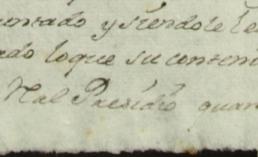 untado y siendole le
ado loque su conteni
Real Presidio quan